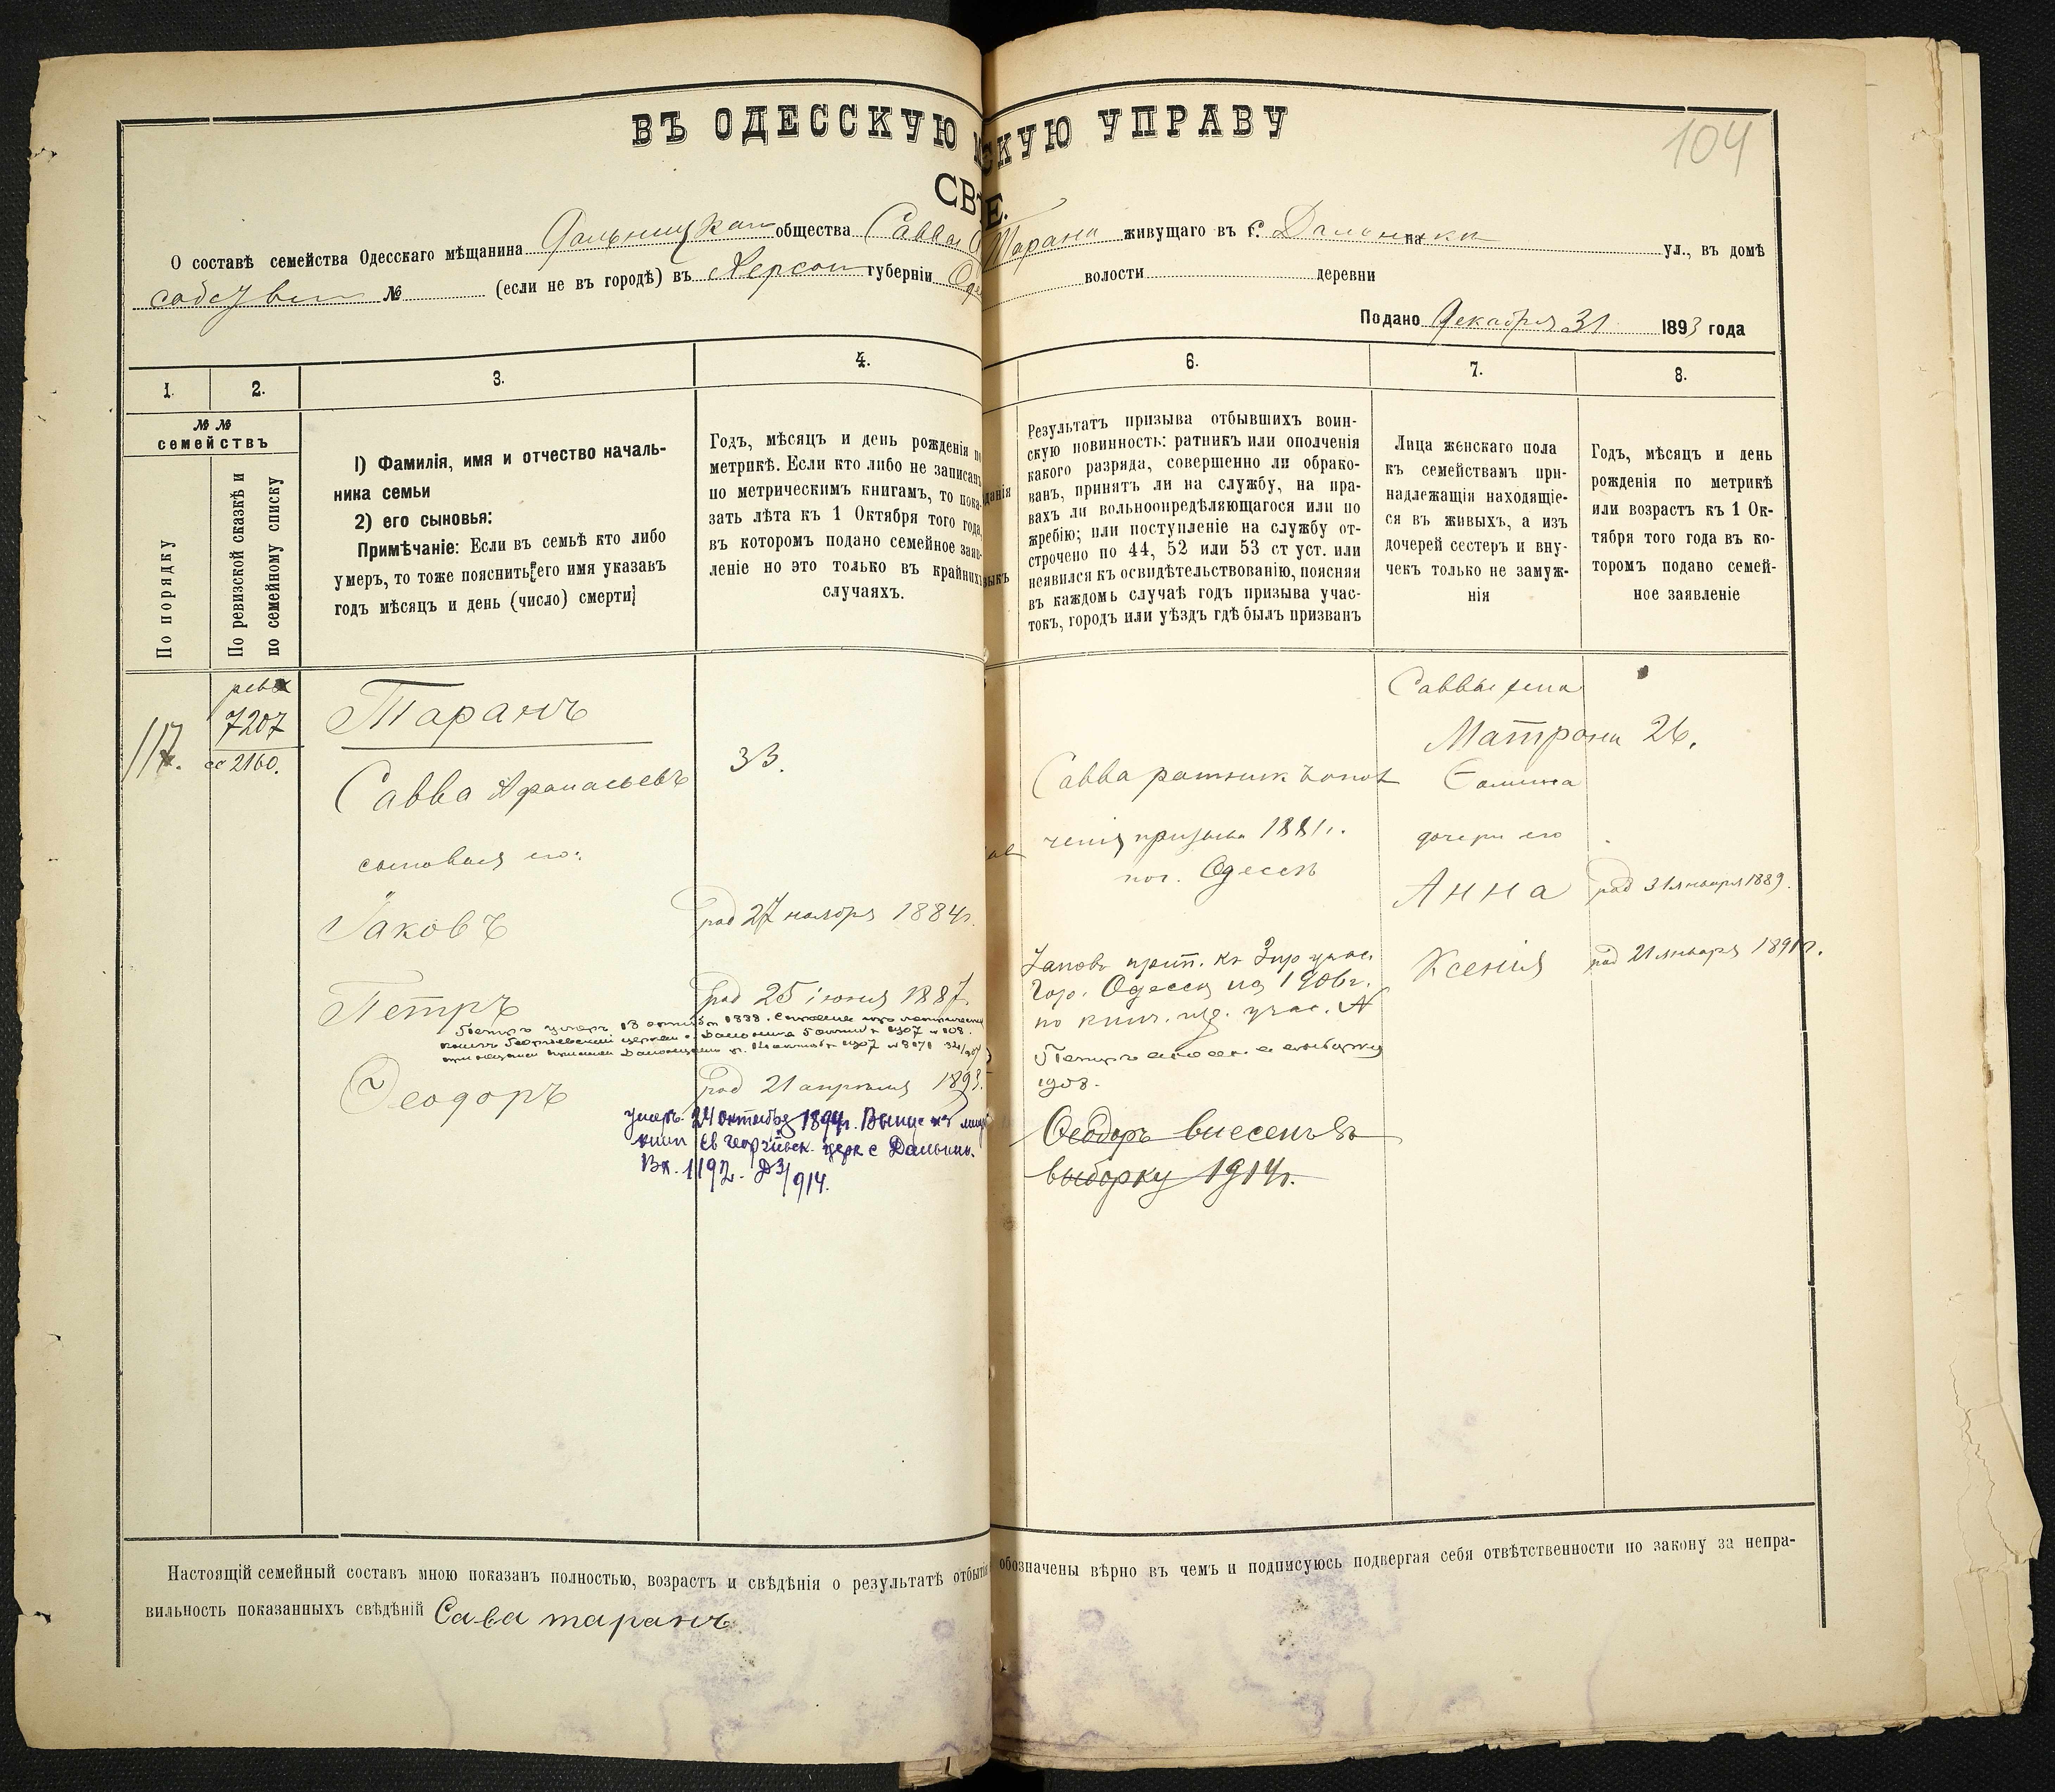 ВЪ ОДЕССКУЮ
СКУЮ УПРАВУ
104
СВ
Е.
О составѣ семейства Одесскаго мѣщанина Дальницкаго общества Савва
Тарана живущаго въ с. Дальники на ул., въ домѣ
собств № (если не въ городѣ) въ Херсон губерніи Оде
волости деревни
Подано Декабря 31 1893 года
1. 2. 3. 4.
6. 7. 8.
№ №
семействъ
По порядку
По ревизской сказкѣ и
по семейному списку
1) Фамилія, имя и отчество началь-
ника семьи
2) его сыновья:
Примѣчаніе: Если въ семьѣ кто либо
умеръ, то тоже пояснить его имя указавъ
годъ мѣсяцъ и день (число) смерти
Годъ, мѣсяцъ и день рожденія по
метрикѣ. Если кто либо не записанъ
по метрическимъ книгамъ, то пока-
зать лѣта къ 1 Октября того года,
въ которомъ подано семейное заяв-
леніе но это только въ крайнихъ
случаяхъ.
Результатъ призыва отбывшихъ воин-
скую повинность: ратникъ или ополченія
какого разряда, совершенно ли обрако-
ванъ, принятъ ли на службу, на пра-
вахъ ли вольноопредѣляющагося или по
жребію; или поступленіе на службу от-
строчено по 44, 52 или 53 ст уст. или
неявился къ освидѣтельствованію, поясняя
въ каждомъ случаѣ годъ призыва учас-
токъ, городъ или уѣздъ гдѣ былъ призванъ
Лица женскаго пола
къ семействамъ при-
надлежащія находящіе-
ся въ живыхъ, а изъ
дочерей сестеръ и вну-
чекъ только не замуж-
нія
Годъ, мѣсяцъ и день
рожденія по метрикѣ
или возрастъ къ 1 Ок-
тября того года въ ко-
торомъ подано семей-
ное заявленіе
117.
рев
7207
сс 2160.
Таранъ
Савва Афанасьевъ
33.
сыновья его:
Іаковъ
род 27 ноября 1884г.
Петръ
род 25 іюня 1887
Петръ умеръ 13 1888.
книгъ Георгіевской церкви с. Дальника 1907 № 108.
Ѳеодоръ
род 21 апреля 1893.
умеръ 24 октября 1894г. Выпис из
книг Св Георгіевск. церк с Дальник.
Вх. 1192. Д3/914.
Савва ратникъ опол
ченія призыва 1881г.
по г. Одессѣ
Іаковъ прип. къ 3 пр учас.
Гор. Одессы на 1906г.
Петръ
1908.
Ѳеодоръ внесенъ въ
выборку 1914г.
Саввы жена
Матрона 26.
дочери его
Анна
род 31 января 1889.
Ксенія
род 21 января 1891г.
Настоящій семейный составъ мною показанъ полностью, возрастъ и свѣдѣнія о результатѣ отбытія
обозначены вѣрно въ чемъ и подписуюсь подвергая себя отвѣтственности по закону за непра-
вильность показанныхъ свѣдѣній Сава таранъ